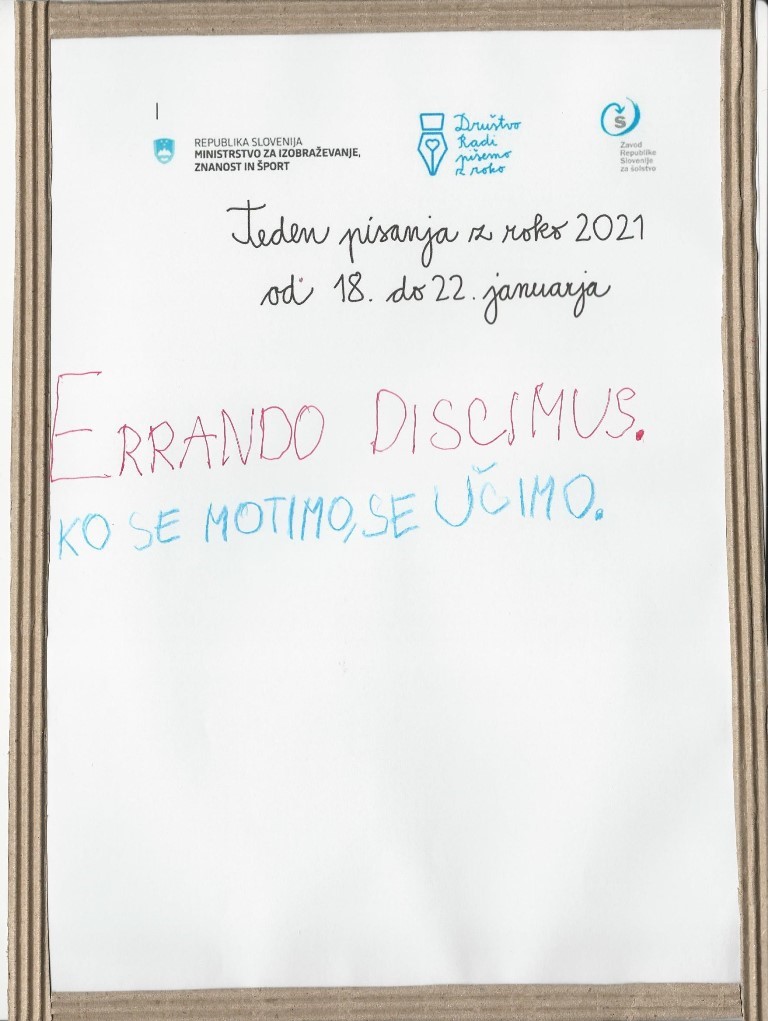 REPUBLIKA SLOVENIJA
MINISTRSTVO ZA IZOBRAŽEVANJE,
ZNANOST IN ŠPORT
Društvo
Radi
pišemo
z roko
Š
Zavod
Republike
Slovenije
za šolstvo
Teden pisanja z roko 2021
od 18. do 22. januarja
ERRANDO DISCIMUS.
KO SE MOTIMO, SE UČIMO.